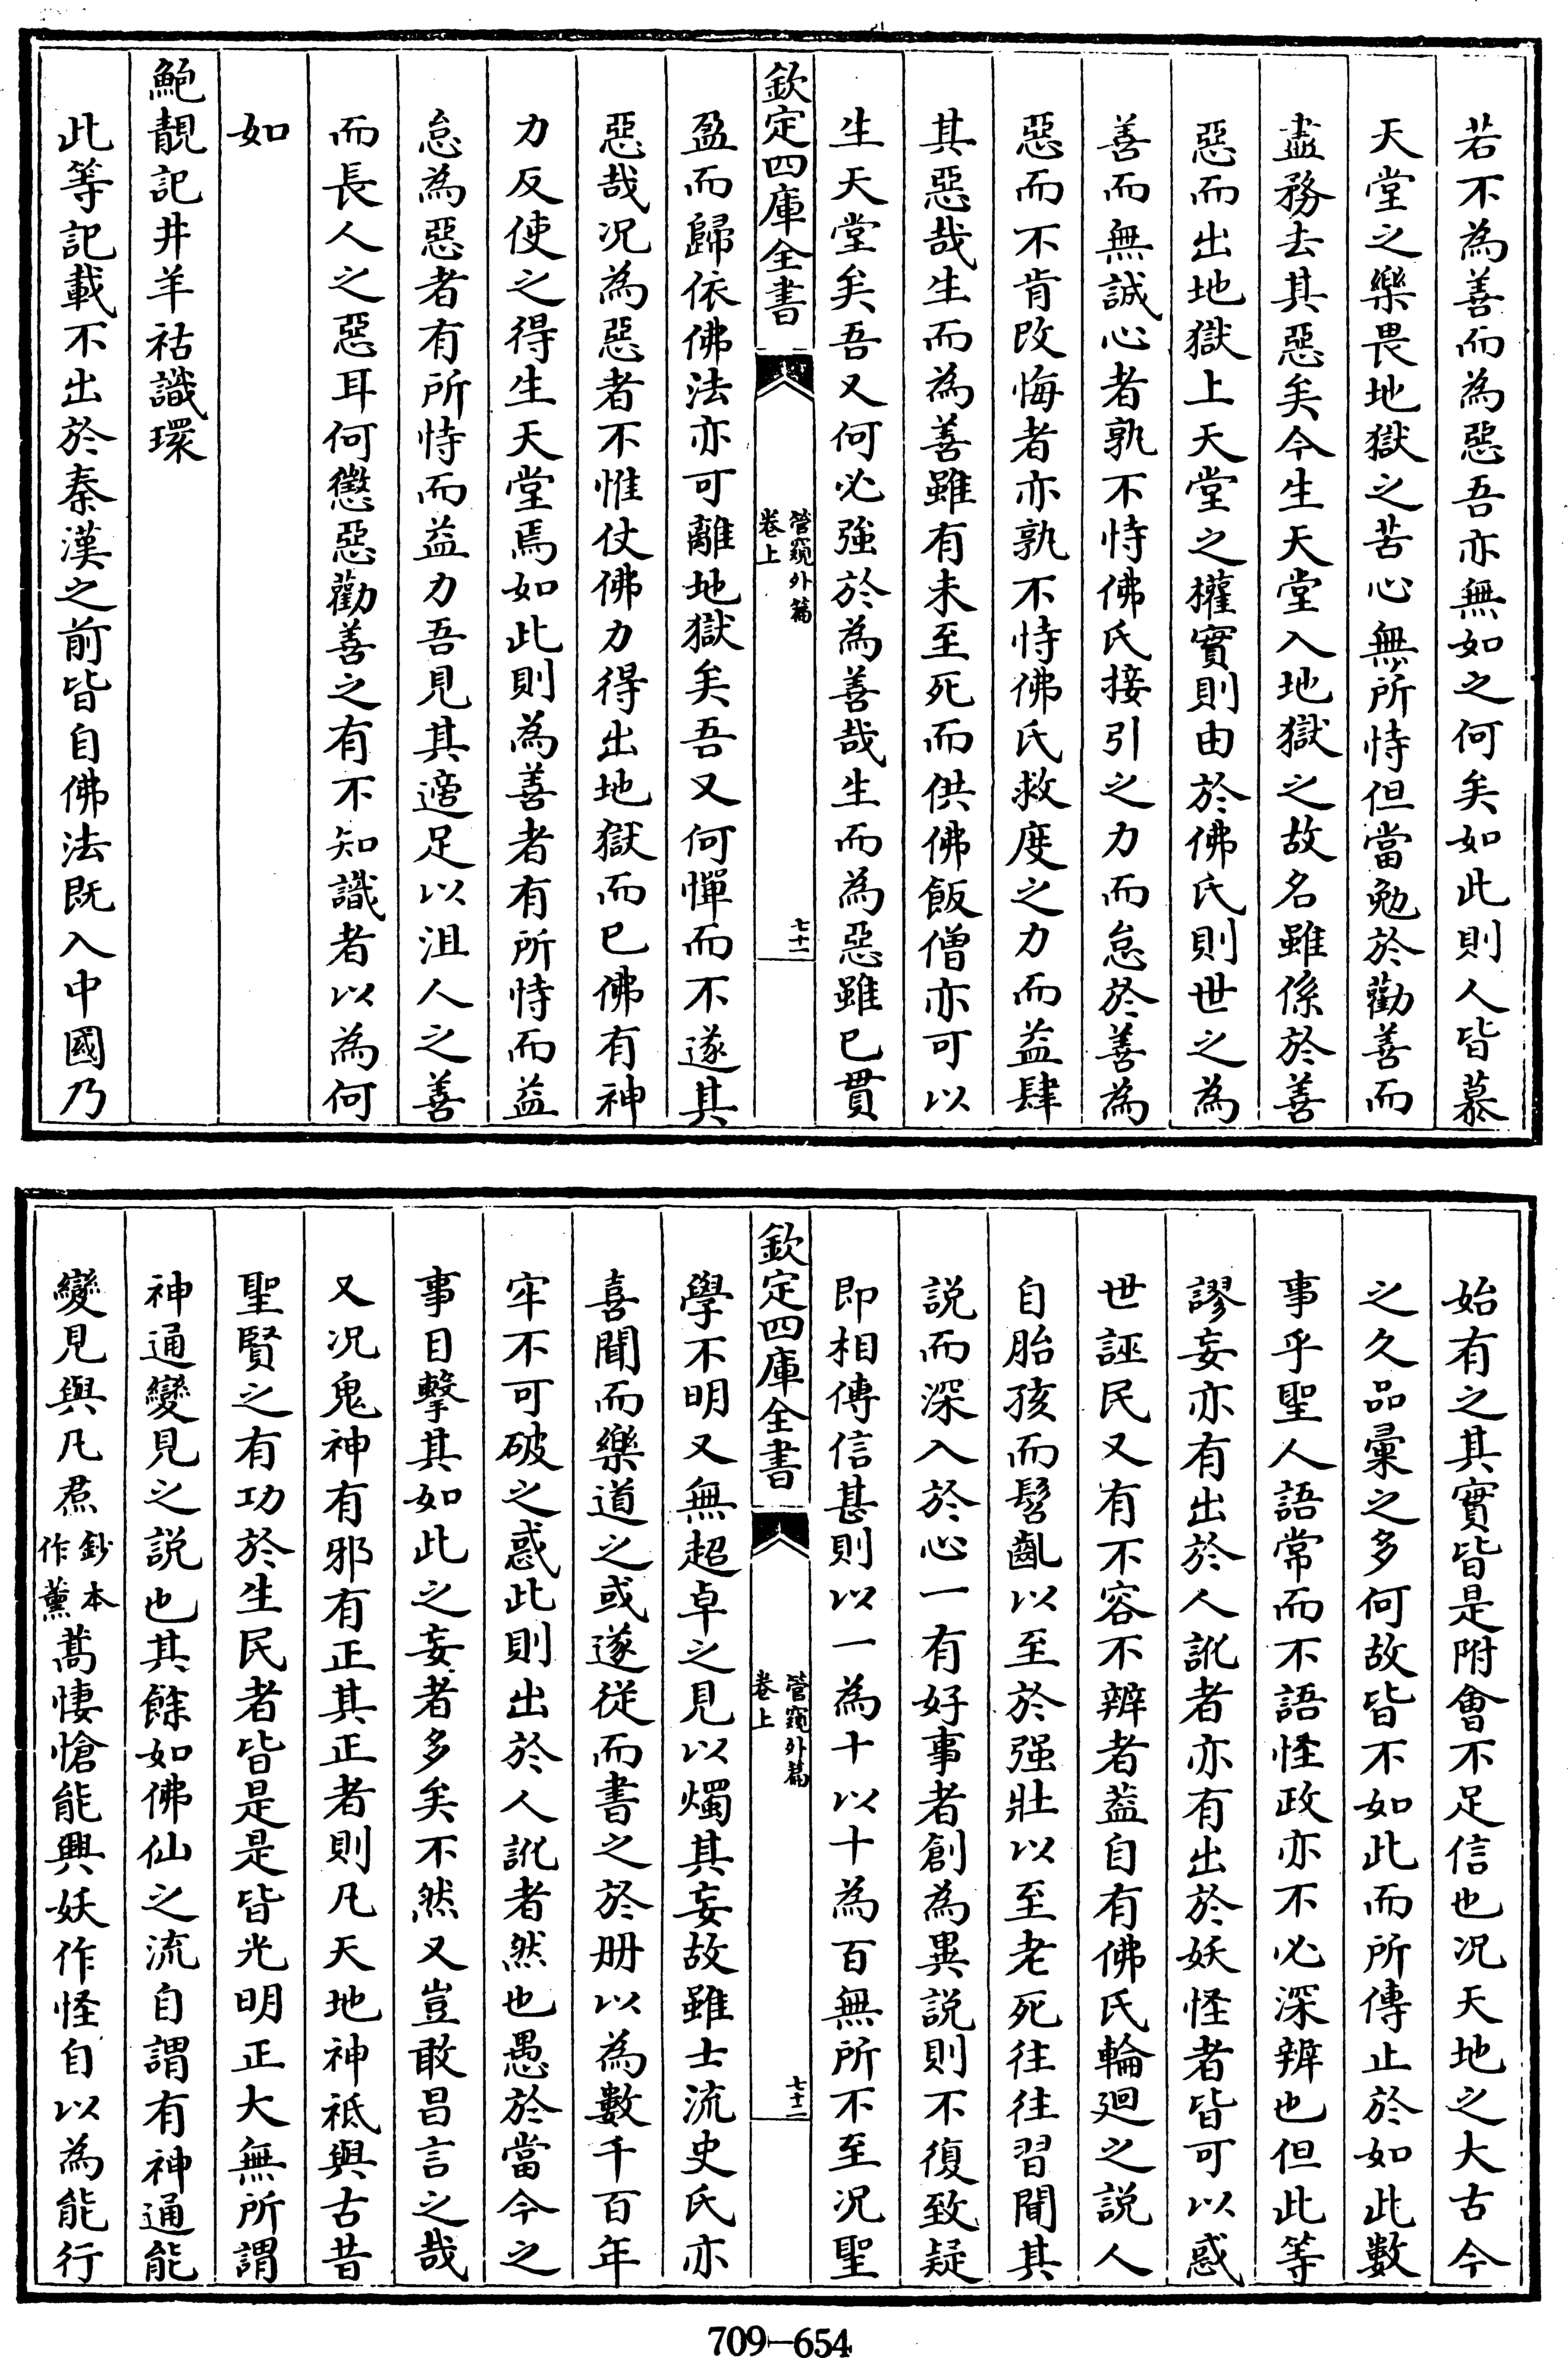 若不為善而為惡吾亦無如之何矣如此則人皆慕
天堂之樂畏地獄之苦心無所恃但當勉於勸善而
盡務去其惡矣今生天堂入地獄之故名雖係於善
惡而出地獄上天堂之權實則由於佛氏則世之為
善而無誠心者孰不恃佛氏接引之力而怠於善為
惡而不肯改悔者亦孰不恃佛氏救度之力而益肆
其惡哉生而為善雖有未至死而供佛飯僧亦可以
生天堂矣吾又何必強於為善哉生而為惡雖已貫
欽定四庫全書
管窺外篇
卷上
七十一
盈而歸依佛法亦可離地獄矣吾又何憚而不遂其
惡哉况為惡者不惟仗佛力得出地獄而已佛有神
力反使之得生天堂焉如此則為善者有所恃而益
怠為惡者有所恃而益力吾見其適足以沮人之善
而長人之惡耳何懲惡勸善之有不知識者以為何
如
鮑靚記井羊祜識環
此等記載不出於秦漢之前皆自佛法既入中國乃
始有之其實皆是附會不足信也况天地之大古今
之久品彙之多何故皆不如此而所傳止於如此數
事乎聖人語常而不語怪政亦不必深辨也但此等
謬妄亦有出於人訛者亦有出於妖怪者皆可以惑
世誣民又有不容不辨者蓋自有佛氏輪廻之説人
自胎孩而髫齓以至於强壯以至老死往往習聞其
説而深入於心一有好事者創為異説則不復致疑
即相傳信甚則以一為十以十為百無所不至况聖
欽定四庫全書
管窺外篇
卷上
七十二
學不明又無超卓之見以燭其妄故雖士流史氏亦
喜聞而樂道之或遂從而書之於册以為數千百年
牢不可破之惑此則出於人訛者然也愚於當今之
事目擊其如此之妄者多矣不然又豈敢昌言之哉
又况鬼神有邪有正其正者則凡天地神祗與古昔
聖賢之有功於生民者皆是是皆光明正大無所謂
神通變見之説也其餘如佛仙之流自謂有神通能
變見與凡焄鈔本作薰蒿悽愴能興妖作怪自以為能行
709-654